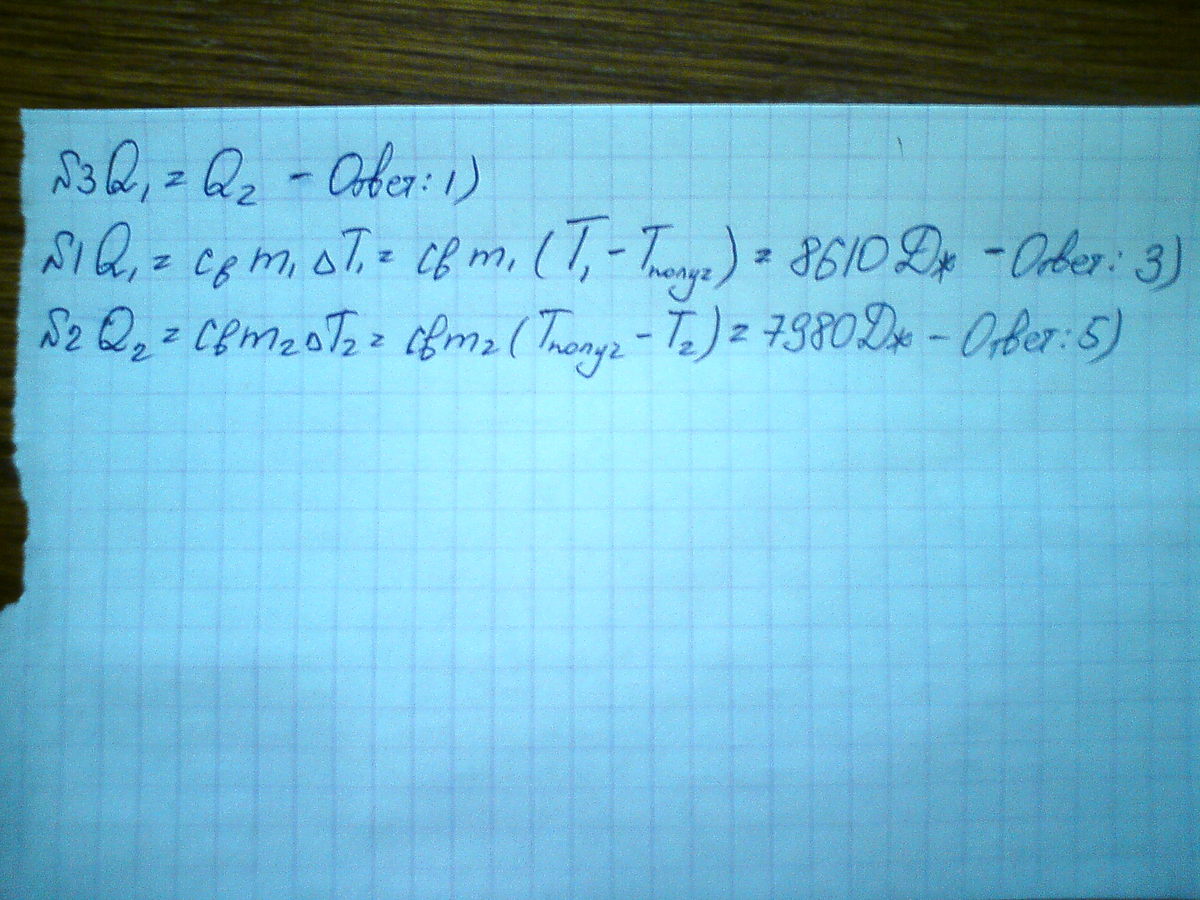 №3 Q₁ = Q₂ - Ответ: 1)
№1 Q₁ = cвm₁ΔT₁ = cвm₁(T₁ - Tполуч) = 8610 Дж - Ответ: 3)
№2 Q₂ = cвm₂ΔT₂ = cвm₂(Tполуч - T₂) = 7980 Дж - Ответ: 5)